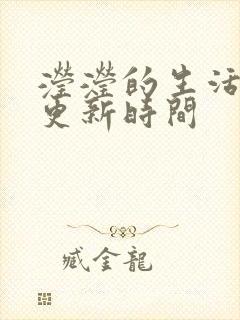 瀅瀅的生活
更新時間
臧金龍